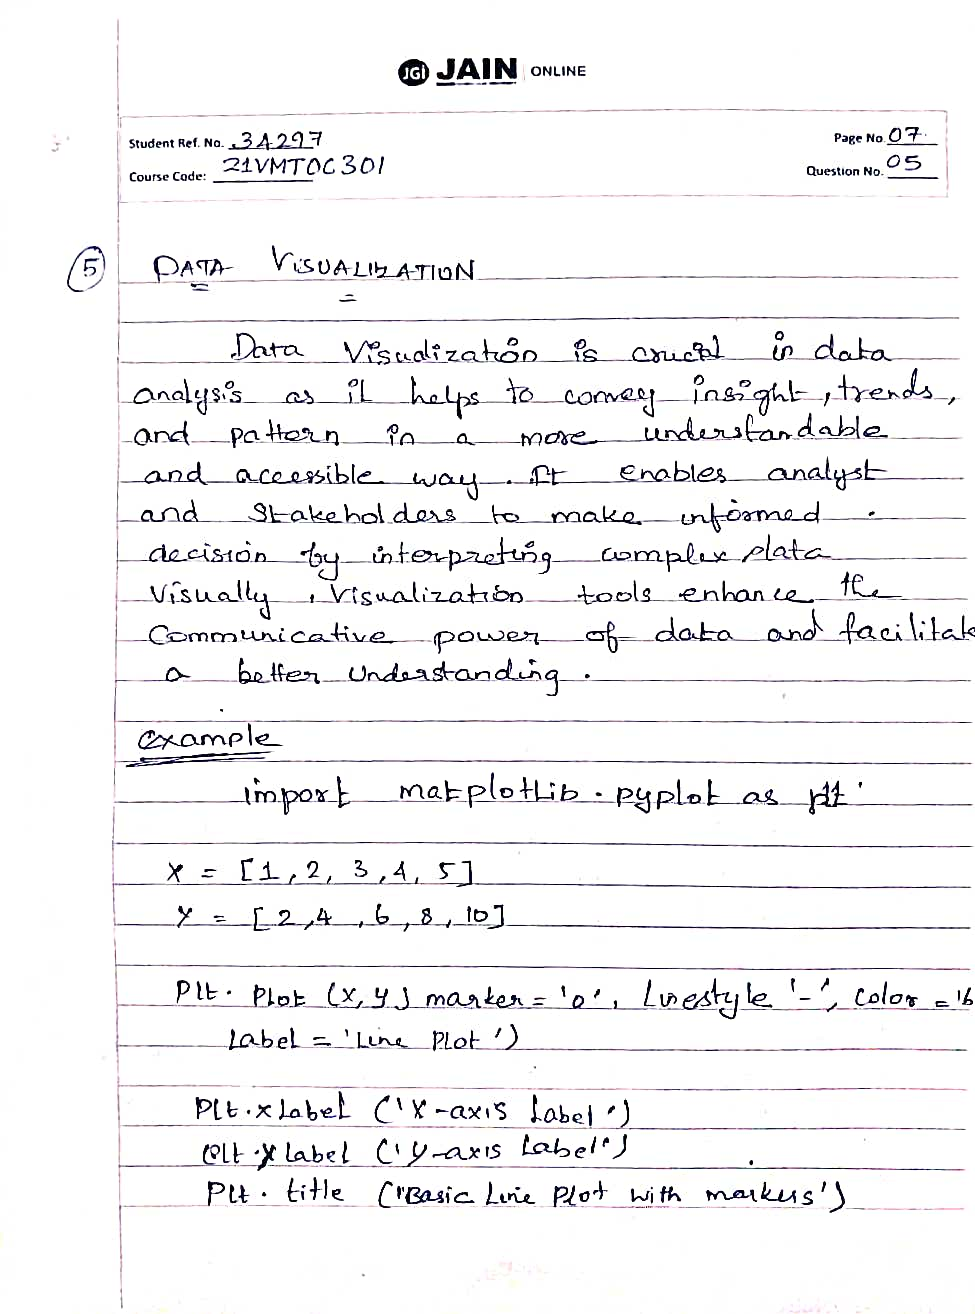 JGI JAIN ONLINE
Student Ref. No. 3A297
Page No. 07.
Course Code: 21VMTOC301
Question No. 05
5 DATA VISUALIZATION
Data Visualization is crucial in data
analysis as it helps to convey insight, trends,
and pattern in a more understandable
and acessible way. It enables analyst
and stakeholders to make informed.
decision by interpreting complex data
Visually, Visualization tools enhance the
Communicative power of data and facilitate
a better understanding.
example
import matplotlib.pyplot as plt
X = [1, 2, 3, 4, 5]
Y = [2, 4, 6, 8, 10]
Plt. Plot (X, Y) marker = 'o', Linestyle '-', color = 'b
Label = 'Line Plot')
Plt.xLabel ('X-axis Label')
Plt.yLabel ('Y-axis Label')
Plt. title ('Basic Line Plot with markers')